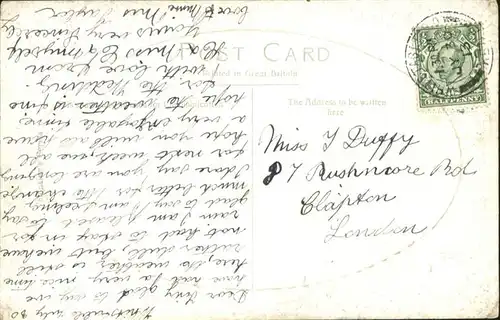 POST CARD
Printed in Great Britain
The Address to be written
here
HALFPENNY
Miss I Duffy
87 Rushmore Rd
Clapton
London
July 30
Dear Ivy glad to say we
have had a very nice time
here, the weather is still
rather dull, but we have
not had to stay in for
rain I am pleased to say.
glad to say I am feeling
much better for the change.
I dare say you are longing
for next week, we all
hope you will also have
a very enjoyable time &
hope the weather is fine
for the Wedding.
with love from
H & Miss E & myself
Yours very Sincerely
Mrs Taylor